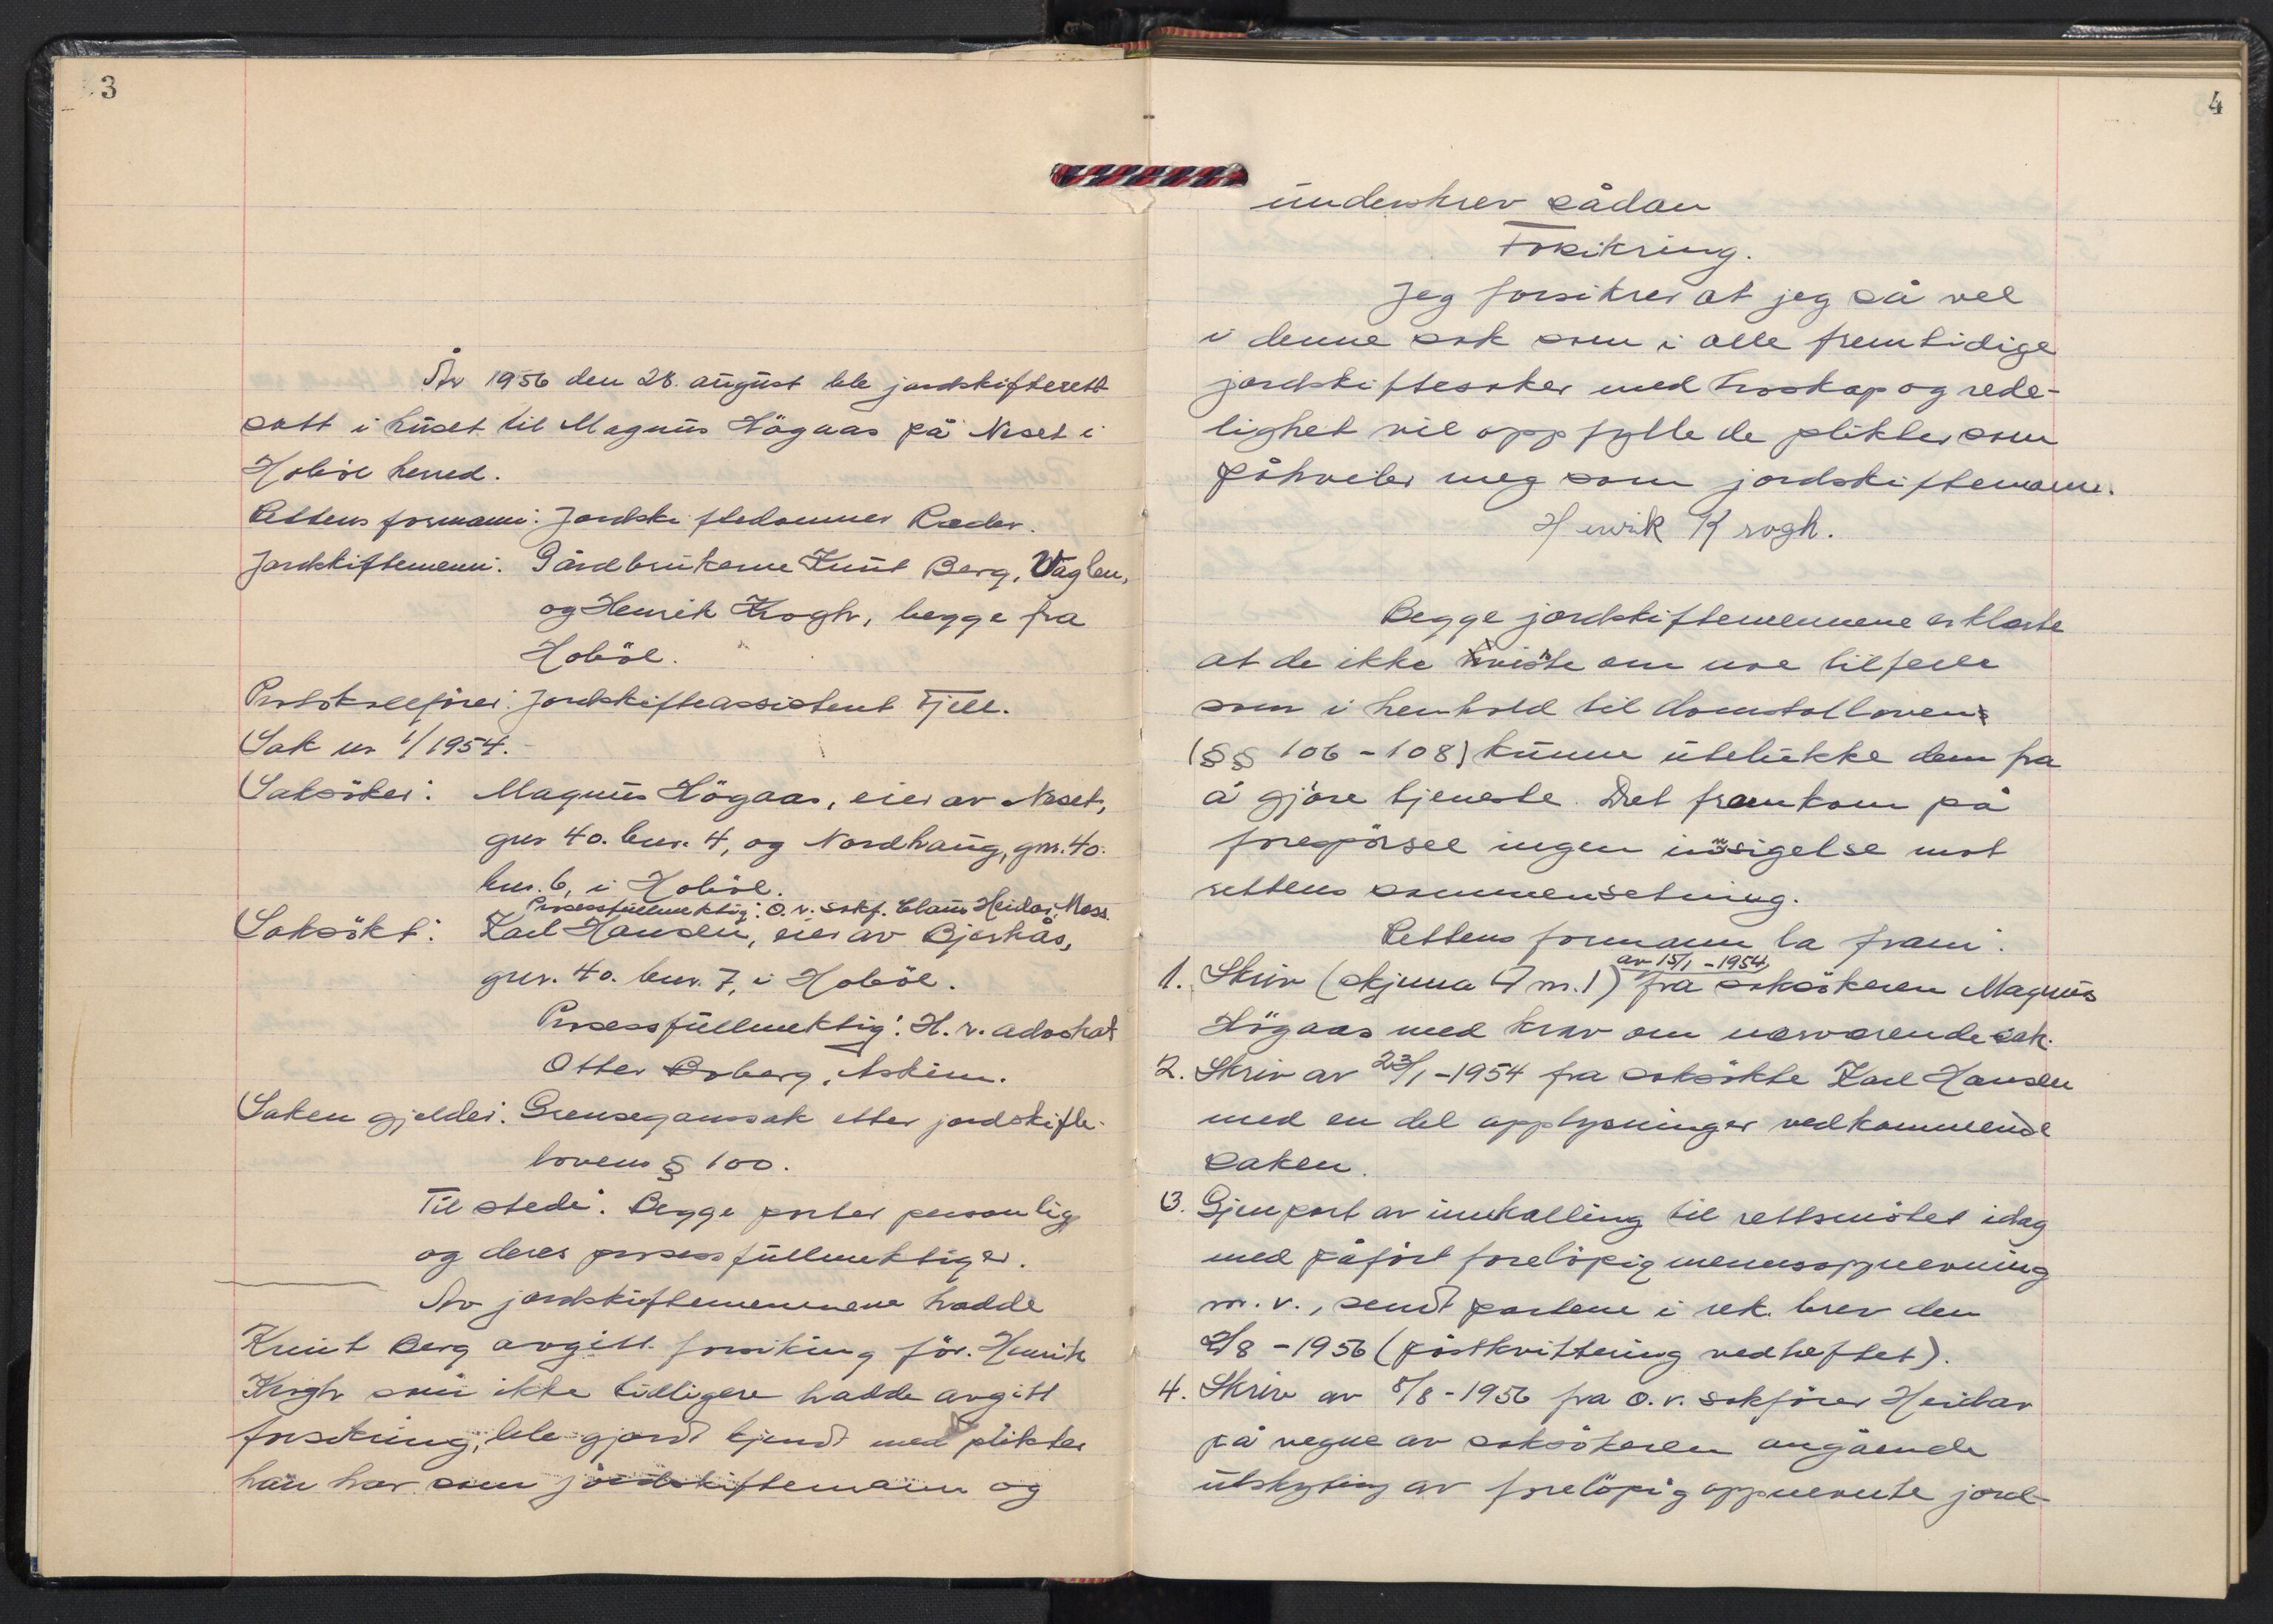 3
År 1956 den 28. august ble jordskifterett
satt i huset til Magnus Högaas på Neset i
Hoböl herred.
Rettens formann: Jordskiftedommer Ræder.
Jordskiftemenn: Gårdbrukerne Knut Berg, Vaglen,
og Henrik Krogh, begge fra
Hoböl.
Protokollförer: Jordskifteassistent Fjell.
Sak nr 1/1954.
Saksöker: Magnus Högaas, eier av Neset,
gnr 40. bnr. 4, og Nordhaug, gnr. 40.
bnr. 6, i Hoböl.
Prosessfullmektig: O.r. sakf. Claus Heidar, Moss.
Saksökt: Karl Hansen, eier av Bjerkås,
gnr. 40. bnr. 7, i Hoböl.
Prosessfullmektig: H.r. advokat
Otter Boberg, Askim.
Saken gjelder: Grensegangssak etter jordskifte-
lovens § 100.
Til stede: Begge parter personlig
og deres prosessfullmektiger.
Av jordskiftemennene hadde
Knut Berg avgitt forsikring för. Henrik
Krogh som ikke tidligere hadde avgitt
forsikring, ble gjordt kjendt med plikter
han har som jordskiftemann og
4
underskrev sådan
Forsikring.
Jeg forsikrer at jeg så vel
i denne sak som i alle fremtidige
jordskiftesaker med troskap og rede-
lighet vil oppfylle de plikter som
påhviler meg som jordskiftemann.
Henrik Krogh.
Begge jordskiftemennene erklærte
at de ikke visste om noe tilfelle
som i henhold til domstolloven
(§§ 106 - 108) kunne utelukke dem fra
å gjöre tjeneste. Det framkom på
forespörsel ingen innsigelse mot
rettens sammensetning.
Rettens formann la fram:
1. Skriv (skjema 47 m.1) av 15/1 - 1954 fra saksökeren Magnus
Högaas med krav om nærværende sak.
2. Skriv av 23/1 - 1954 fra saksökte Karl Hansen
med en del opplysninger vedkommende
saken.
3. Gjenpart av innkalling til rettsmötet idag
med påfört forelöpig mennsoppnevning
m.v., sendt partene i rek. brev den
2/8 - 1956 (postkvittering vedheftet).
4. Skriv av 8/8 - 1956 fra o.r. sakförer Heidar
på vegne av saksökeren angående
utskyting av forelöpig oppnevnte jord-